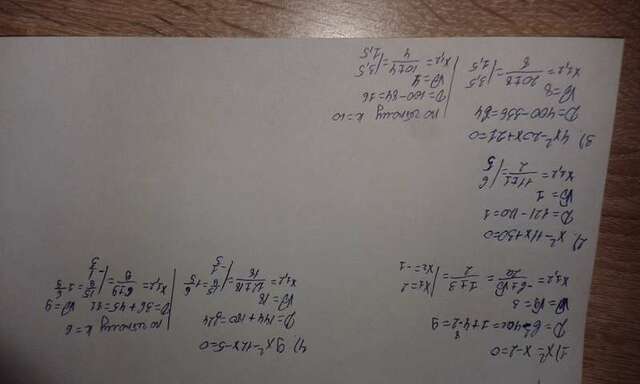 1) x²-x-2=0
D=b²-4ac=1+4·2=9
√D=√9=3
x₁,₂=(-b±√D)/2a=(1±3)/2=/x₁=2
x₂=-1
2) x²-11x+30=0
D=121-120=1
√D=1
x₁,₂=(11±1)/2=/6
5
3) 4x²-20x+21=0
D=400-336=64
√D=8
x₁,₂=(20±8)/8=/3,5
1,5
по чётному k=10
D=100-84=16
√D=4
x₁,₂=(10±4)/4=/3,5
1,5
4) 9x²-12x-5=0
D=144+180=324
√D=18
x₁,₂=(12±18)/18=/15/9=1 6/9
-1/3
по чётному k=6
D=36+45=81 √D=9
x₁,₂=(6±9)/9=/15/9=1 6/9
-1/3